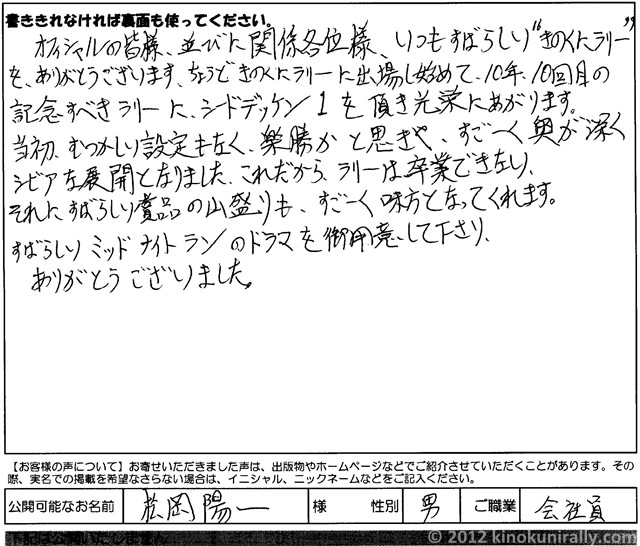 書ききれなければ裏面も使ってください。
オフィシャルの皆様、並びに関係各位様、いつもすばらしい“きのくにラリー”
を、ありがとうございます、ちょうどきのくにラリーに出場し始めて、10年、10回目の
記念すべきラリーに、シードゼッケン1を頂き光栄にあがります。
当初、むつかしい設定もなく、楽勝かと思きや、すごーく奥が深く
シビアな展開となりました、これだから、ラリーは卒業できない、
それに、すばらしい賞品の山盛りも、すごーく味方となってくれます。
すばらしい ミッドナイトランのドラマを御用意して下さり、
ありがとうございました。
【お客様の声について】お寄せいただきました声は、出版物やホームページなどでご紹介させていただくことがあります。その
際、実名での掲載を希望なさらない場合は、イニシャル、ニックネームなどをご記入ください。
公開可能なお名前 松岡 陽一 様 性別 男 ご職業 会社員
下記は公開いたしません
© 2012 kinokunirally.com